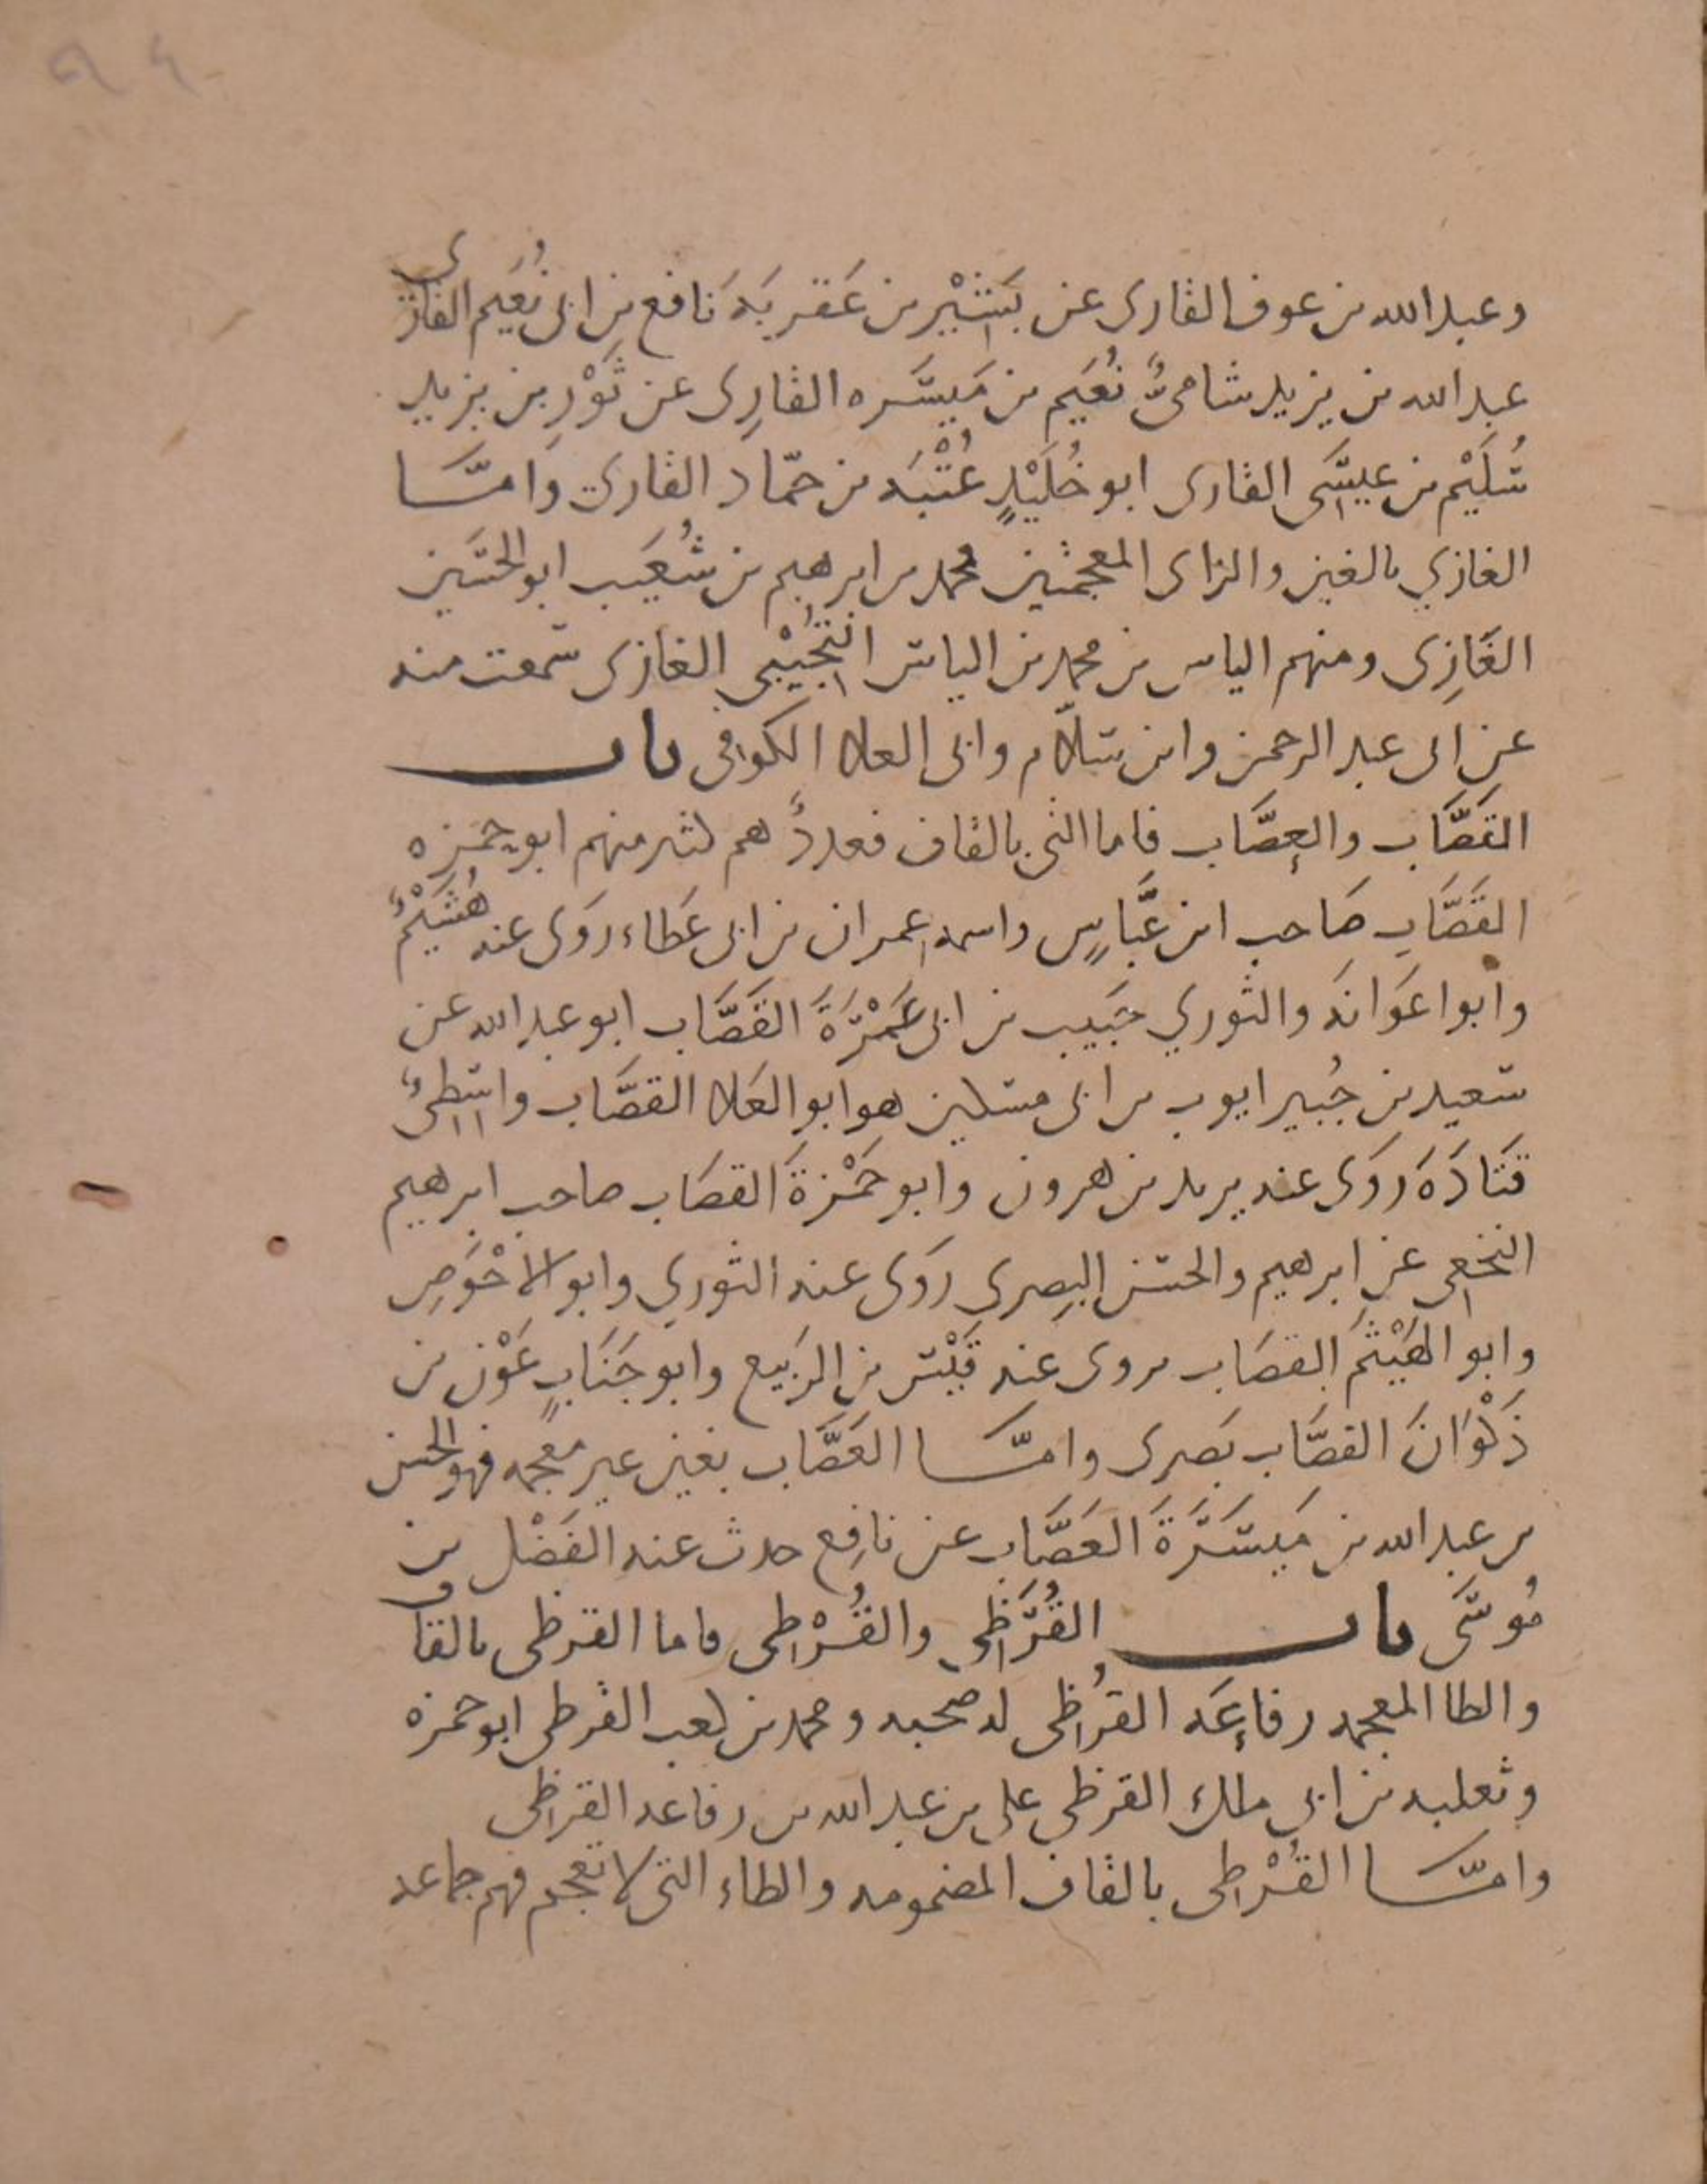 ٩٤
وعبد الله بن عوف القارى عن بَشِيْر بن عَقربَهَ نافع بن ابى نُعَيم القارى
عبد الله بن يزيد شامىٌّ نُعَيم بن مَيسَره القارِى عن ثَوْرِ بن يزيد
سُلَيْم بن عيسَى القارى ابو خُلَيْدٍ عُتْبَه بن حمّاد القاري وَامّا
الغازي بالغين والزاى المعجمتين محمد بن ابرهيم بن شُعَيب ابو الحسَين
الغَازِى ومنهم الياس بن محمد بن الياس التُجِيْبى الغازى سمعت منه
عن ابى عبد الرحمن وابن سلّام وابى العلا الكوفى باب
القَصَّاب والعصَّاب فاما التى بالقاف فعددٌ هم كثير منهم ابو حمزه
القَصَّاب صَاحب ابن عبَّاسٍ واسمه عمران بن ابى عَطاء روَى عنه هُشَيْمٌ
وابوا عَوَانَه والثوري حَبيب بن ابى عَمْرَةَ القَصَّاب ابو عبد الله عن
سعيد بن جُبير ايوب بن ابى مسكين هو ابو العَلا القصَّاب واسطىٌ
قتَادَهَ روَى عنه يزيد بن هرون وابو حَمْزةَ القصَاب صاحب ابرهيم
النخعى عن ابرهيم والحسن البصري روَى عنه الثوري وابو الاحْوَصِ
وابو الهَيْثَم القصَاب يروى عنه قَيْس بن الرَبيع وابو جَنَابٍ عَوْن بن
ذَكْوَانَ القصَّاب بَصرى وامّا العَصَّاب بغين غير معجمه فهو الحسن
بن عبد الله بن مَيسَرَةَ العَصَّاب عن نافِع حدث عنه الفَضْل بن
مُوسَى باب القُرَظى والقُرْطى فاما القرظى بالقاف
والظا المعجمه رفاعَه القرُظى له صحبه ومحمد بن كعب القرظى ابو حمزه
وثعلبه بن ابى ملك القرظى على بن عبد الله بن رفاعه القرظى
وامّا القُرْطى بالقاف المضمومه والطاء التى لا تعجم فهم جماعه